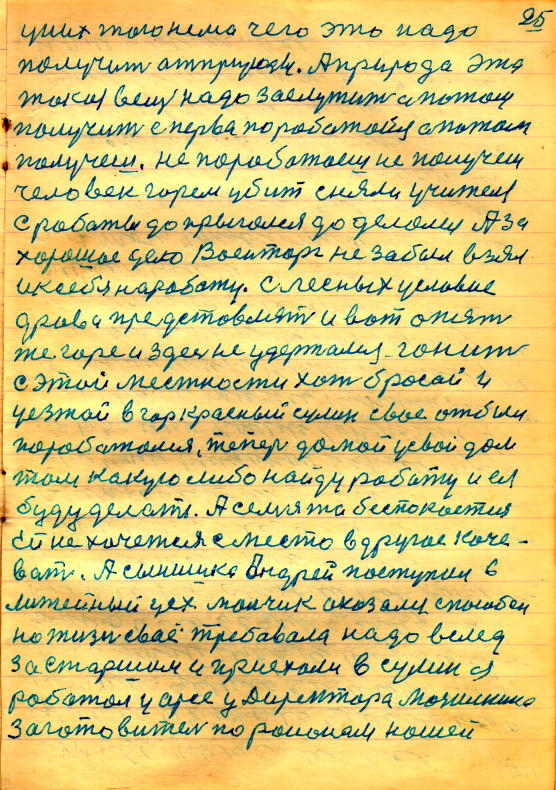 25
у них того нема чего это надо
получит от природы. А природа эта
такая вещ надо заслужит а потом
получит сперва поработайя а потом
получеш. не поработаеш не получеш
человек горем убит сняли учителя
с работы до прыгался до делался А за
хорошое дело Военторг не забыл взял
и к себя на работу. с лесных условие
дрова представлят и вот опят
же горе и здес не удержался. гонит
с этой местности хот бросай и
уезжай в гор красный сулин свое отбыл
поработался, тепер домой усвой дом
там какую либо найду работу и ея
буду делать. А семья та беспокоется
Ей не хочется с место в другое коче-
ват. А сынишка Андрей поступил в
литейный цех малчик оказался способен
но жизн своё требавала надо вслед
за старшом и приехали в сулин я
работал у арсе у Директора
Заготовител по районам нашей